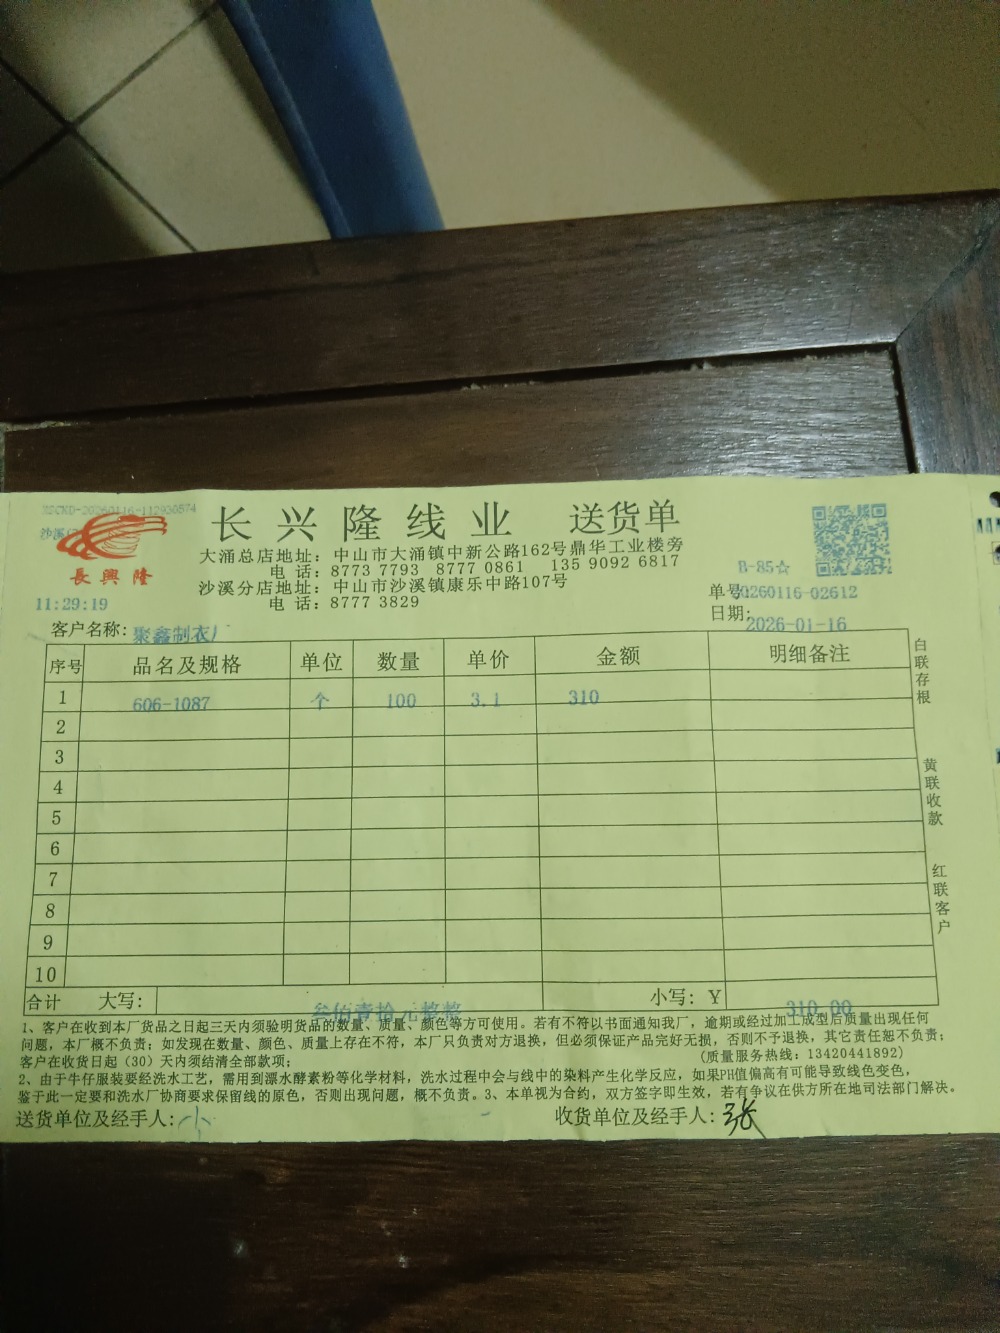 XSCKD-20260116-112930574
长兴隆线业 送货单
沙溪
大涌总店地址：中山市大涌镇中新公路162号鼎华工业楼旁
長興隆
电话：8773 7793 8777 0861 135 9092 6817
B-85☆
沙溪分店地址：中山市沙溪镇康乐中路107号
单号:20260116-02612
11:29:19
电话：8777 3829
日期:2026-01-16
客户名称:聚鑫制衣厂
序号 品名及规格 单位 数量 单价 金额 明细备注
1 606-1087 个 100 3.1 310
2
3
4
5
6
7
8
9
10
合计 大写: 叁佰壹拾元整整 小写: Y 310.00
白联存根
黄联收款
红联客户
1、客户在收到本厂货品之日起三天内须验明货品的数量、质量、颜色等方可使用。若有不符以书面通知我厂，逾期或经过加工成型后质量出现任何
问题，本厂概不负责；如发现在数量、颜色、质量上存在不符，本厂只负责对方退换，但必须保证产品完好无损，否则不予退换，其它责任恕不负责；
客户在收货日起（30）天内须结清全部款项； (质量服务热线：13420441892)
2、由于牛仔服装要经洗水工艺，需用到漂水酵素粉等化学材料，洗水过程中会与线中的染料产生化学反应，如果PH值偏高有可能导致线色变色，
鉴于此一定要和洗水厂协商要求保留线的原色，否则出现问题，概不负责。3、本单视为合约，双方签字即生效，若有争议在供方所在地司法部门解决。
送货单位及经手人:小 收货单位及经手人:张